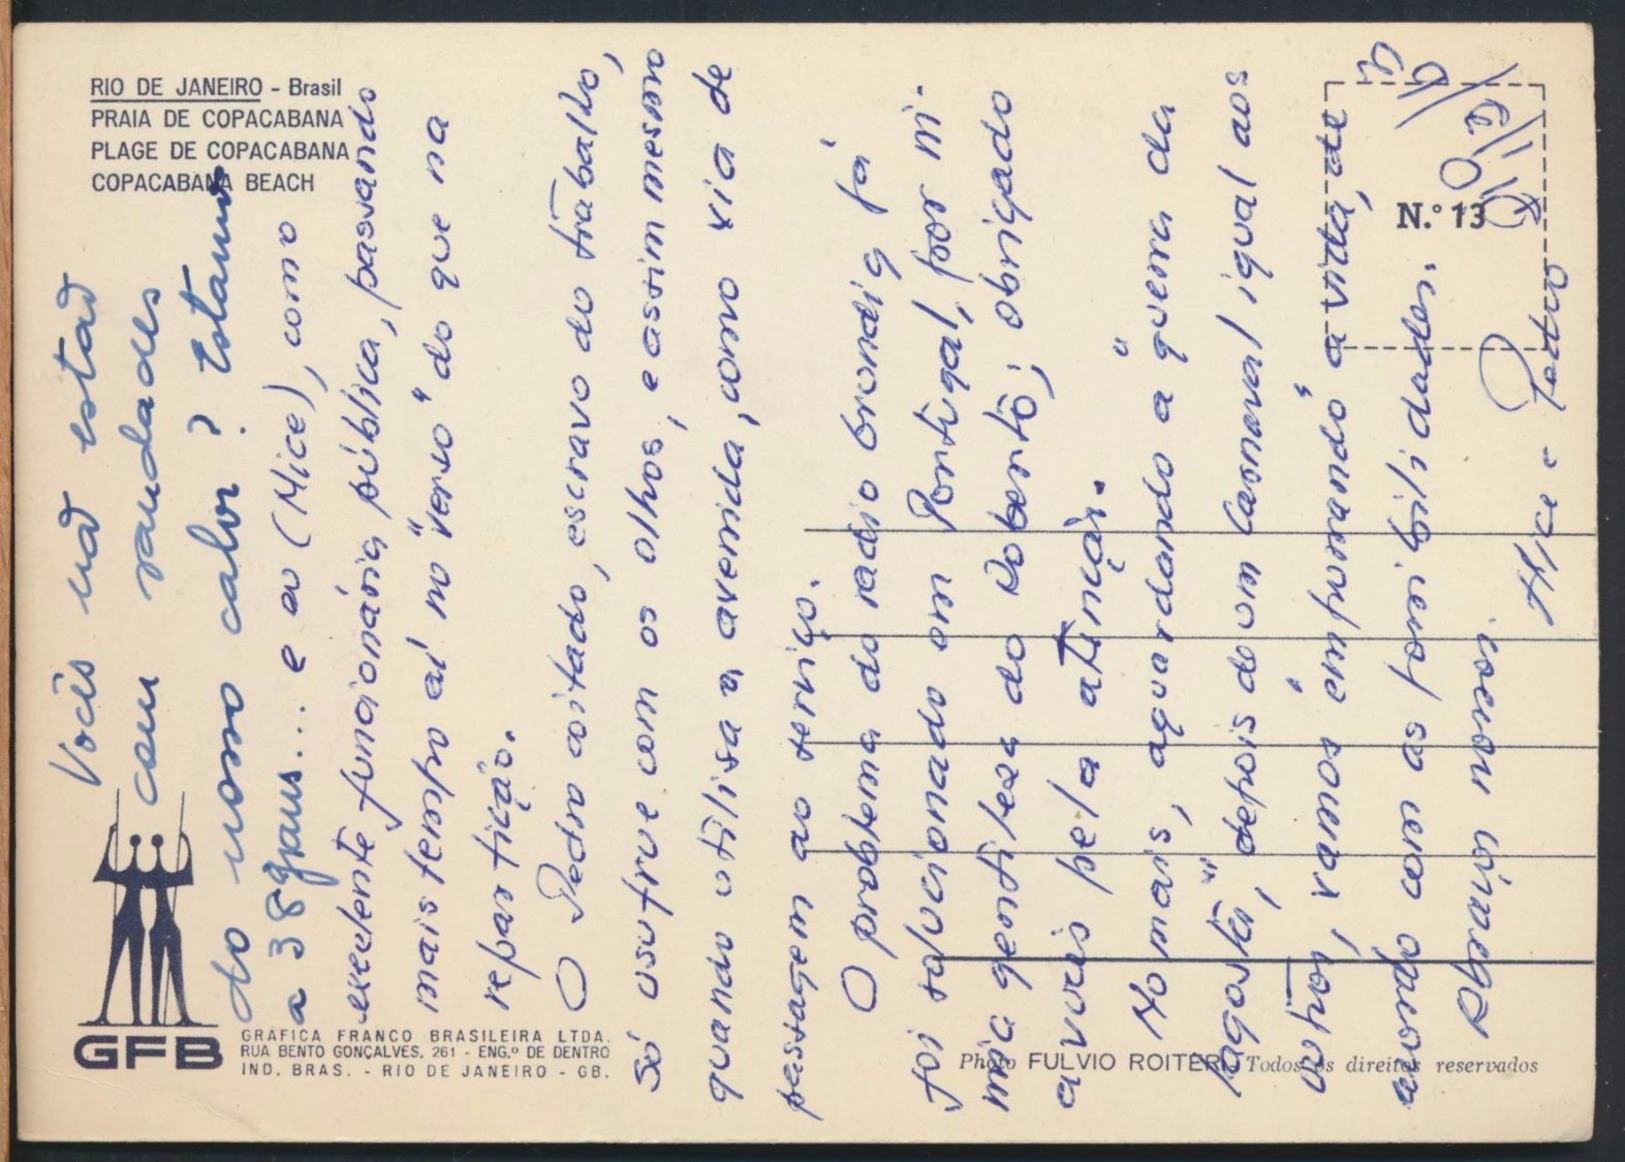 RIO DE JANEIRO - Brasil
PRAIA DE COPACABANA
PLAGE DE COPACABANA
COPACABANA BEACH
N.º 13
GFB
GRÁFICA FRANCO BRASILEIRA LTDA.
RUA BENTO GONÇALVES, 261 - ENG.º DE DENTRO
IND. BRAS. - RIO DE JANEIRO - GB.
Photo FULVIO ROITER - Todos os direitos reservados
Vocês não estão
com saudades
do nosso calor? Estamos
a 38 graus... e eu (Alice), como
excelente funcionária pública, passando
mais tempo aí no "verso" do que na
repartição.
O Pedro coitado, escravo do trabalho,
só usufrue com os olhos, e assim mesmo
quando utilisa a avenida, como via de
passagem ao serviço.
O problema do radio Grondig já
foi solucionado em Portugal, por ni-
mia gentileza do Roberto; obrigado
a vocês pela atenção.
No mais, aguardando a "guerra da
lagosta", depois de um Carnaval igual aos
outros, vamos "empurrando" a vida, de
acordo com as possibilidades.
Abraços nossos
Alice e Pedro